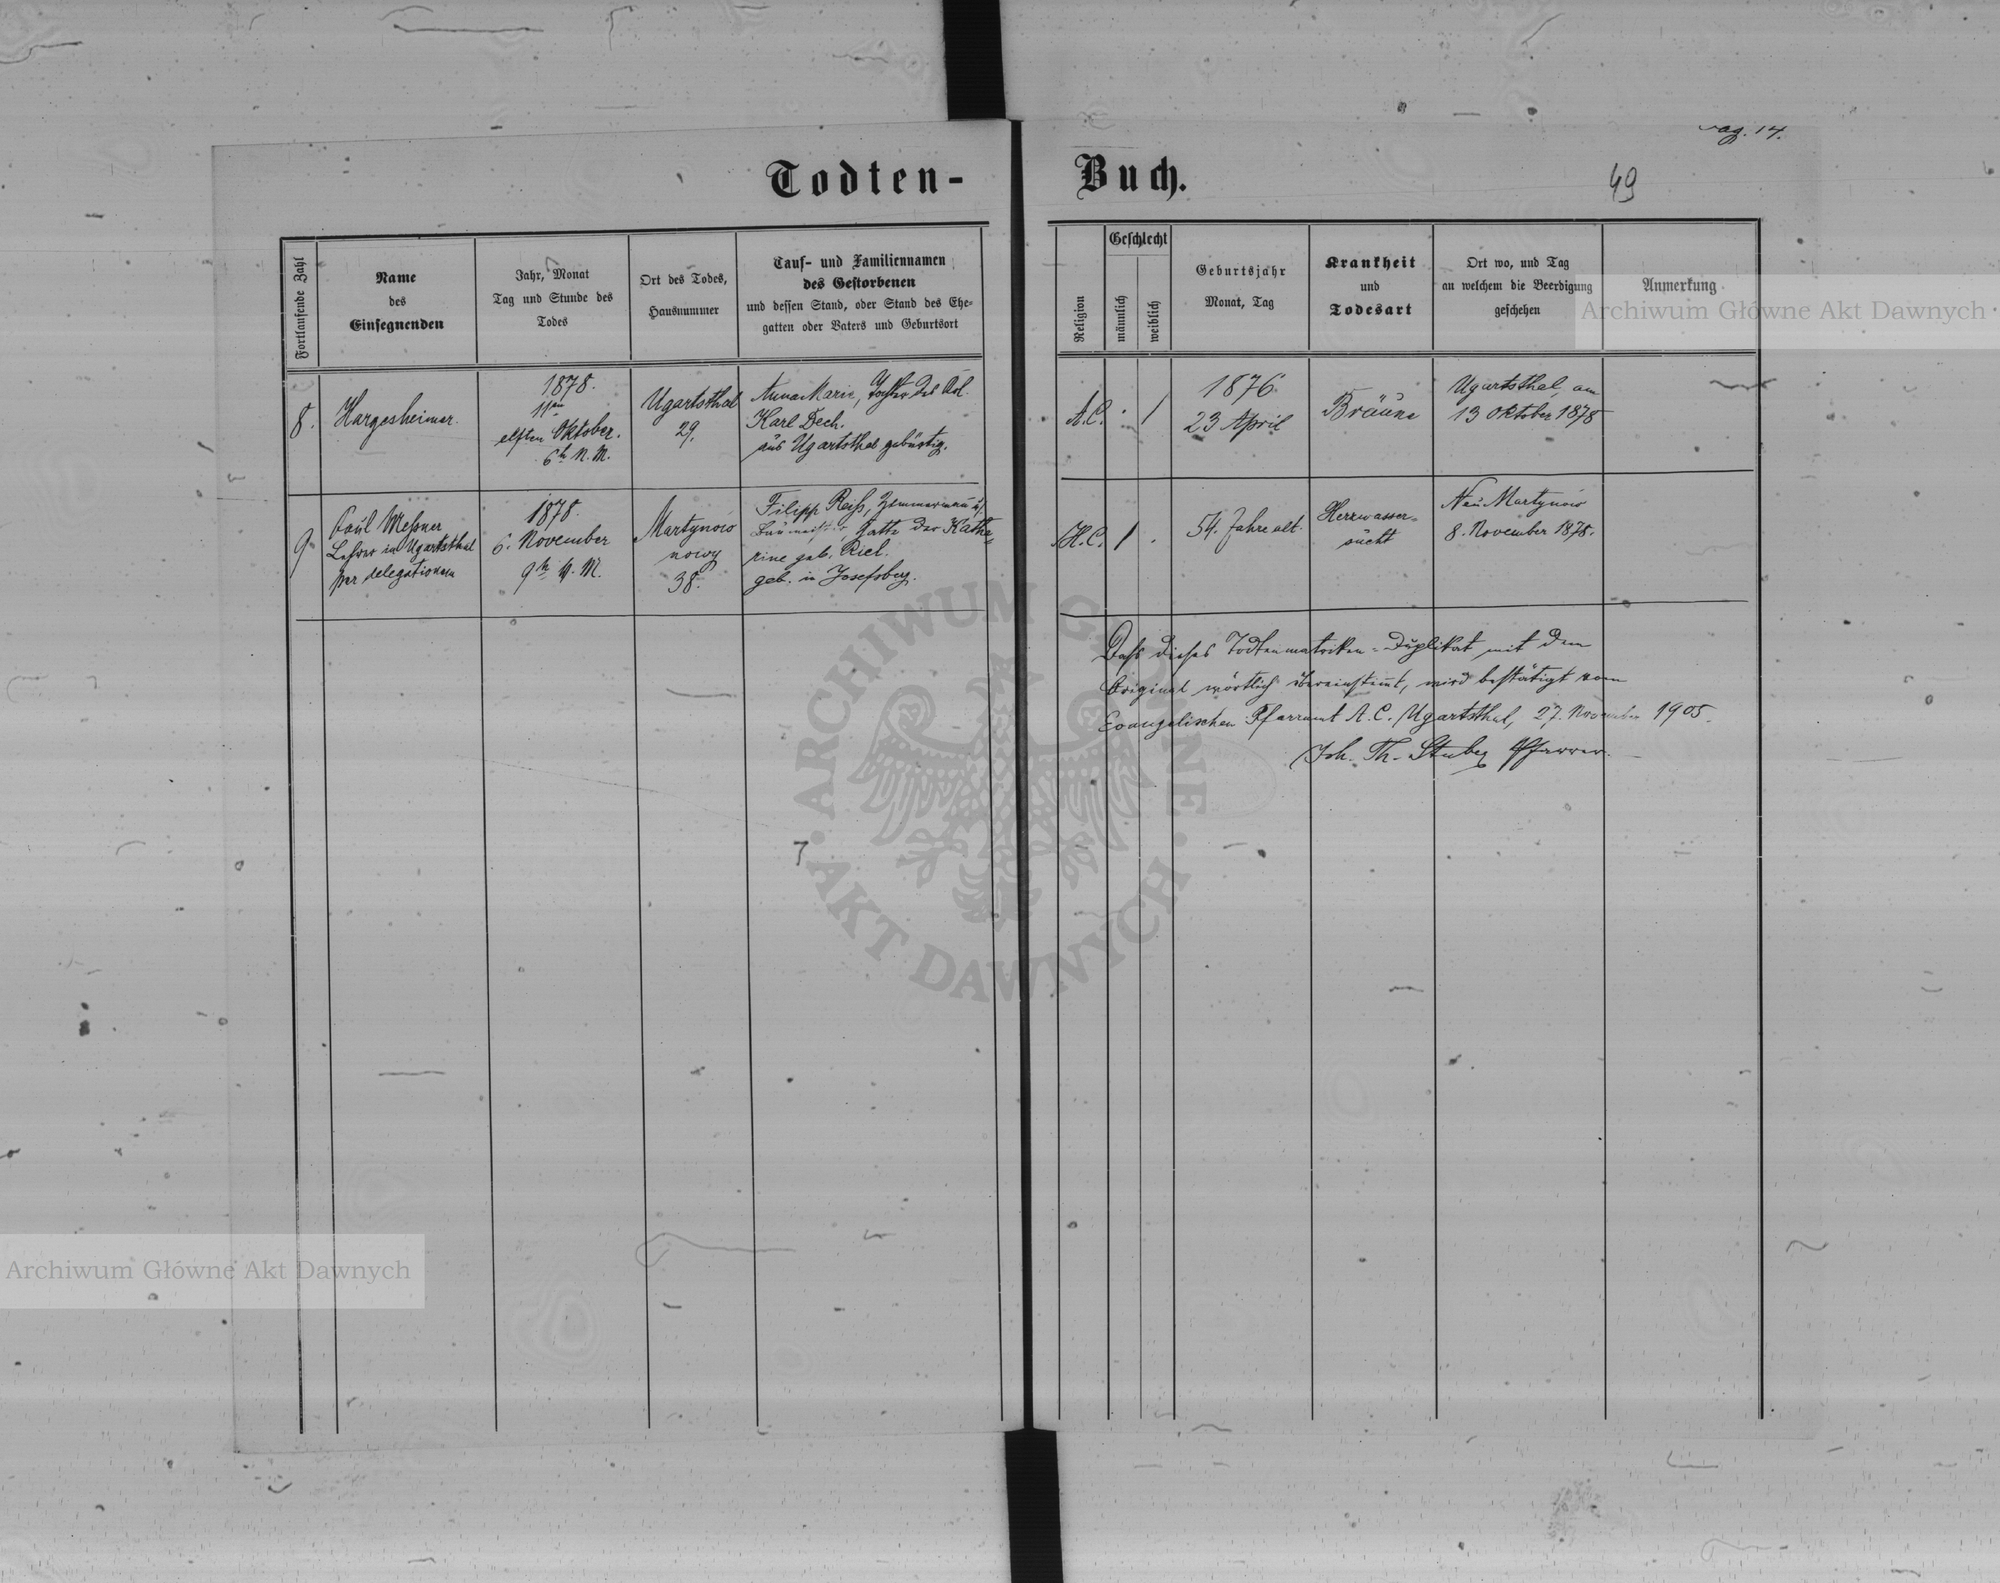 pag. 14.
49
Todten-Buch.
Fortlaufende Zahl
Name
des
Einsegnenden
Jahr, Monat
Tag und Stunde des
Todes
Ort des Todes,
Hausnummer
Tauf- und Familiennamen
des Gestorbenen
und dessen Stand, oder Stand des Ehe-
gatten oder Vaters und Geburtsort
Religion
Geschlecht
männlich
weiblich
Geburtsjahr
Monat, Tag
Krankheit
und
Todesart
Ort wo, und Tag
an welchem die Beerdigung
geschehen
Anmerkung
8.
Hargesheimer
1878.
11ten
elften Oktober.
6h N. M.
Ugartsthal
29.
Anna Marie, Tochter des
Karl Dech.
aus Ugartsthal gebürtig.
A.C.
. 1
1876.
23 April
Bräune
Ugartsthal, am
13 Oktober 1878
9.
Paul Meßner
Lehrer in Ugartsthal
per delegationem
1878.
6. November
9h V. M.
Martynow
nowy
38.
Filipp Reiß, Zimmermann u.
Baumeister, Gatte der Katha-
rine geb. Riel.
geb. in Josefsberg.
H.C.
1 .
54. Jahre alt.
Herzwasser-
sucht
Neu Martynow
8. November 1878.
Daß dieses Todtenmatriken-Duplikat mit dem
Original wörtlich übereinstimmt, wird bestätigt vom
Evangelischen Pfarramt A. C. Ugartsthal, 27. November 1905.
Joh. Th. Stuber Pfarrer.
Archiwum Główne Akt Dawnych
ARCHIWUM GŁÓWNE
AKT DAWNYCH
Archiwum Główne Akt Dawnych